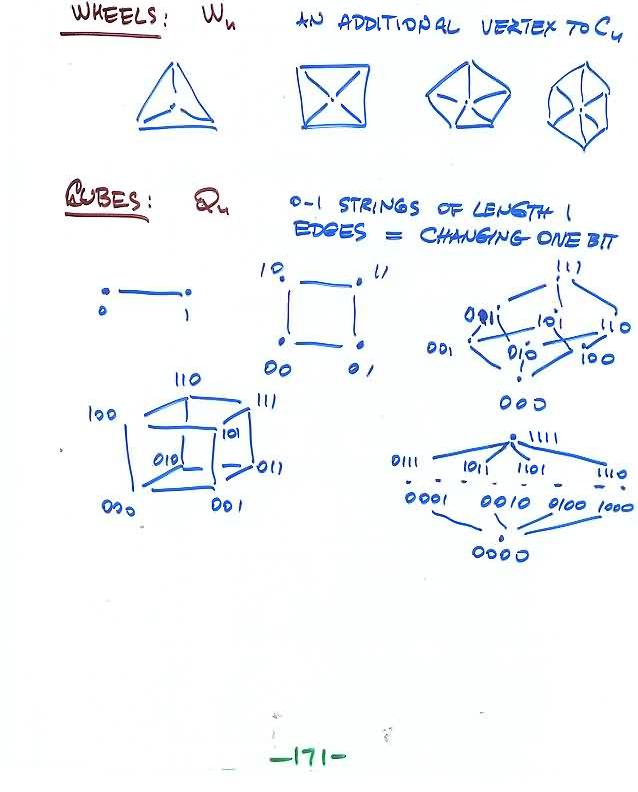 WHEELS: Wn AN ADDITIONAL VERTEX TO Cn
CUBES: Qn 0-1 STRINGS OF LENGTH 1
EDGES = CHANGING ONE BIT
0 1
10 11
00 01
111
011 101 110
001 010 100
000
110
100 111
101
010 011
000 001
1111
0111 1011 1101 1110
0001 0010 0100 1000
0000
-171-